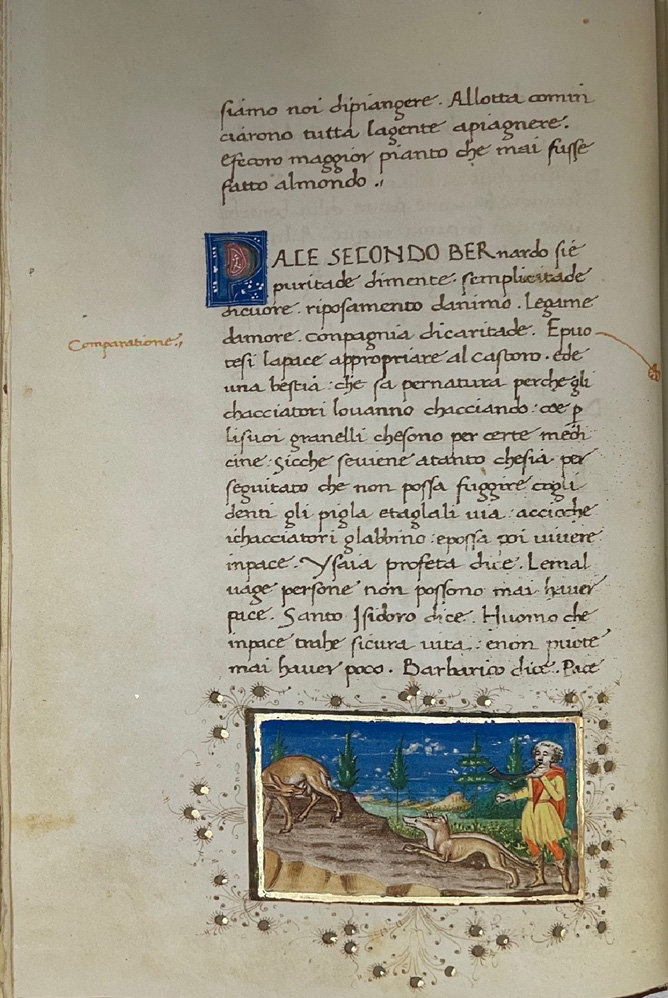 siamo noi dipiangere. Allotta comin
ciarono tutta lagente apiagnere.
efecoro maggior pianto che mai fusse
fatto almondo.
PACE SECONDO BERnardo sie
puritade dimente. semplicitade
dicuore. riposamento danimo. legame
damore. compagnia dicaritade. Epuo
Comparatione.
tesi lapace appropriare al castoro. ede
una bestia: che sa pernatura perche gli
chacciatori lovanno chacciando: coe p
lisuoi granelli chesono per certe medi
cine. Sicche seviene atanto chesia per
seguitato che non possa fuggire cogli
denti gli pigla etaglali via: accioche
ichacciatori glabbino: epossa poi vivere
inpace. Ysaia profeta dice. Lemal
vage persone non possono mai haver
pace. Santo Isidoro dice. Huomo che
inpace trahe sicura vita: enon puote
mai haver poco. Barbarico dice. Pace